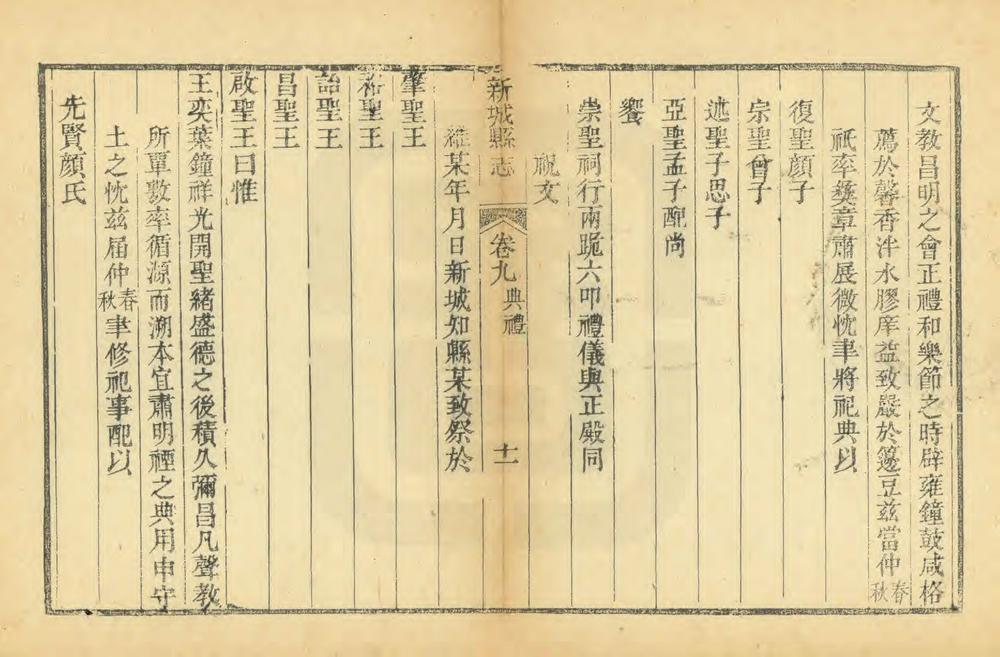 文教昌明之會正禮和樂節之時辟雍鐘鼓咸格
薦於馨香泮水膠庠益致嚴於籩豆兹當仲春秋
祇率彝章肅展微忱聿將祀典以
復聖顏子
宗聖曾子
述聖子思子
亞聖孟子配尚
饗
崇聖祠行兩跪六叩禮儀與正殿同
祝文
新城縣志 卷九 典禮 十一
維某年月日新城知縣某致祭於
肇聖王
裕聖王
詒聖王
昌聖王
啟聖王曰惟
王奕葉鐘祥光開聖緒盛德之後積久彌昌凡聲教
所覃敷率循源而溯本宜肅明禋之典用申守
土之忱兹届仲春秋聿修祀事配以
先賢顏氏